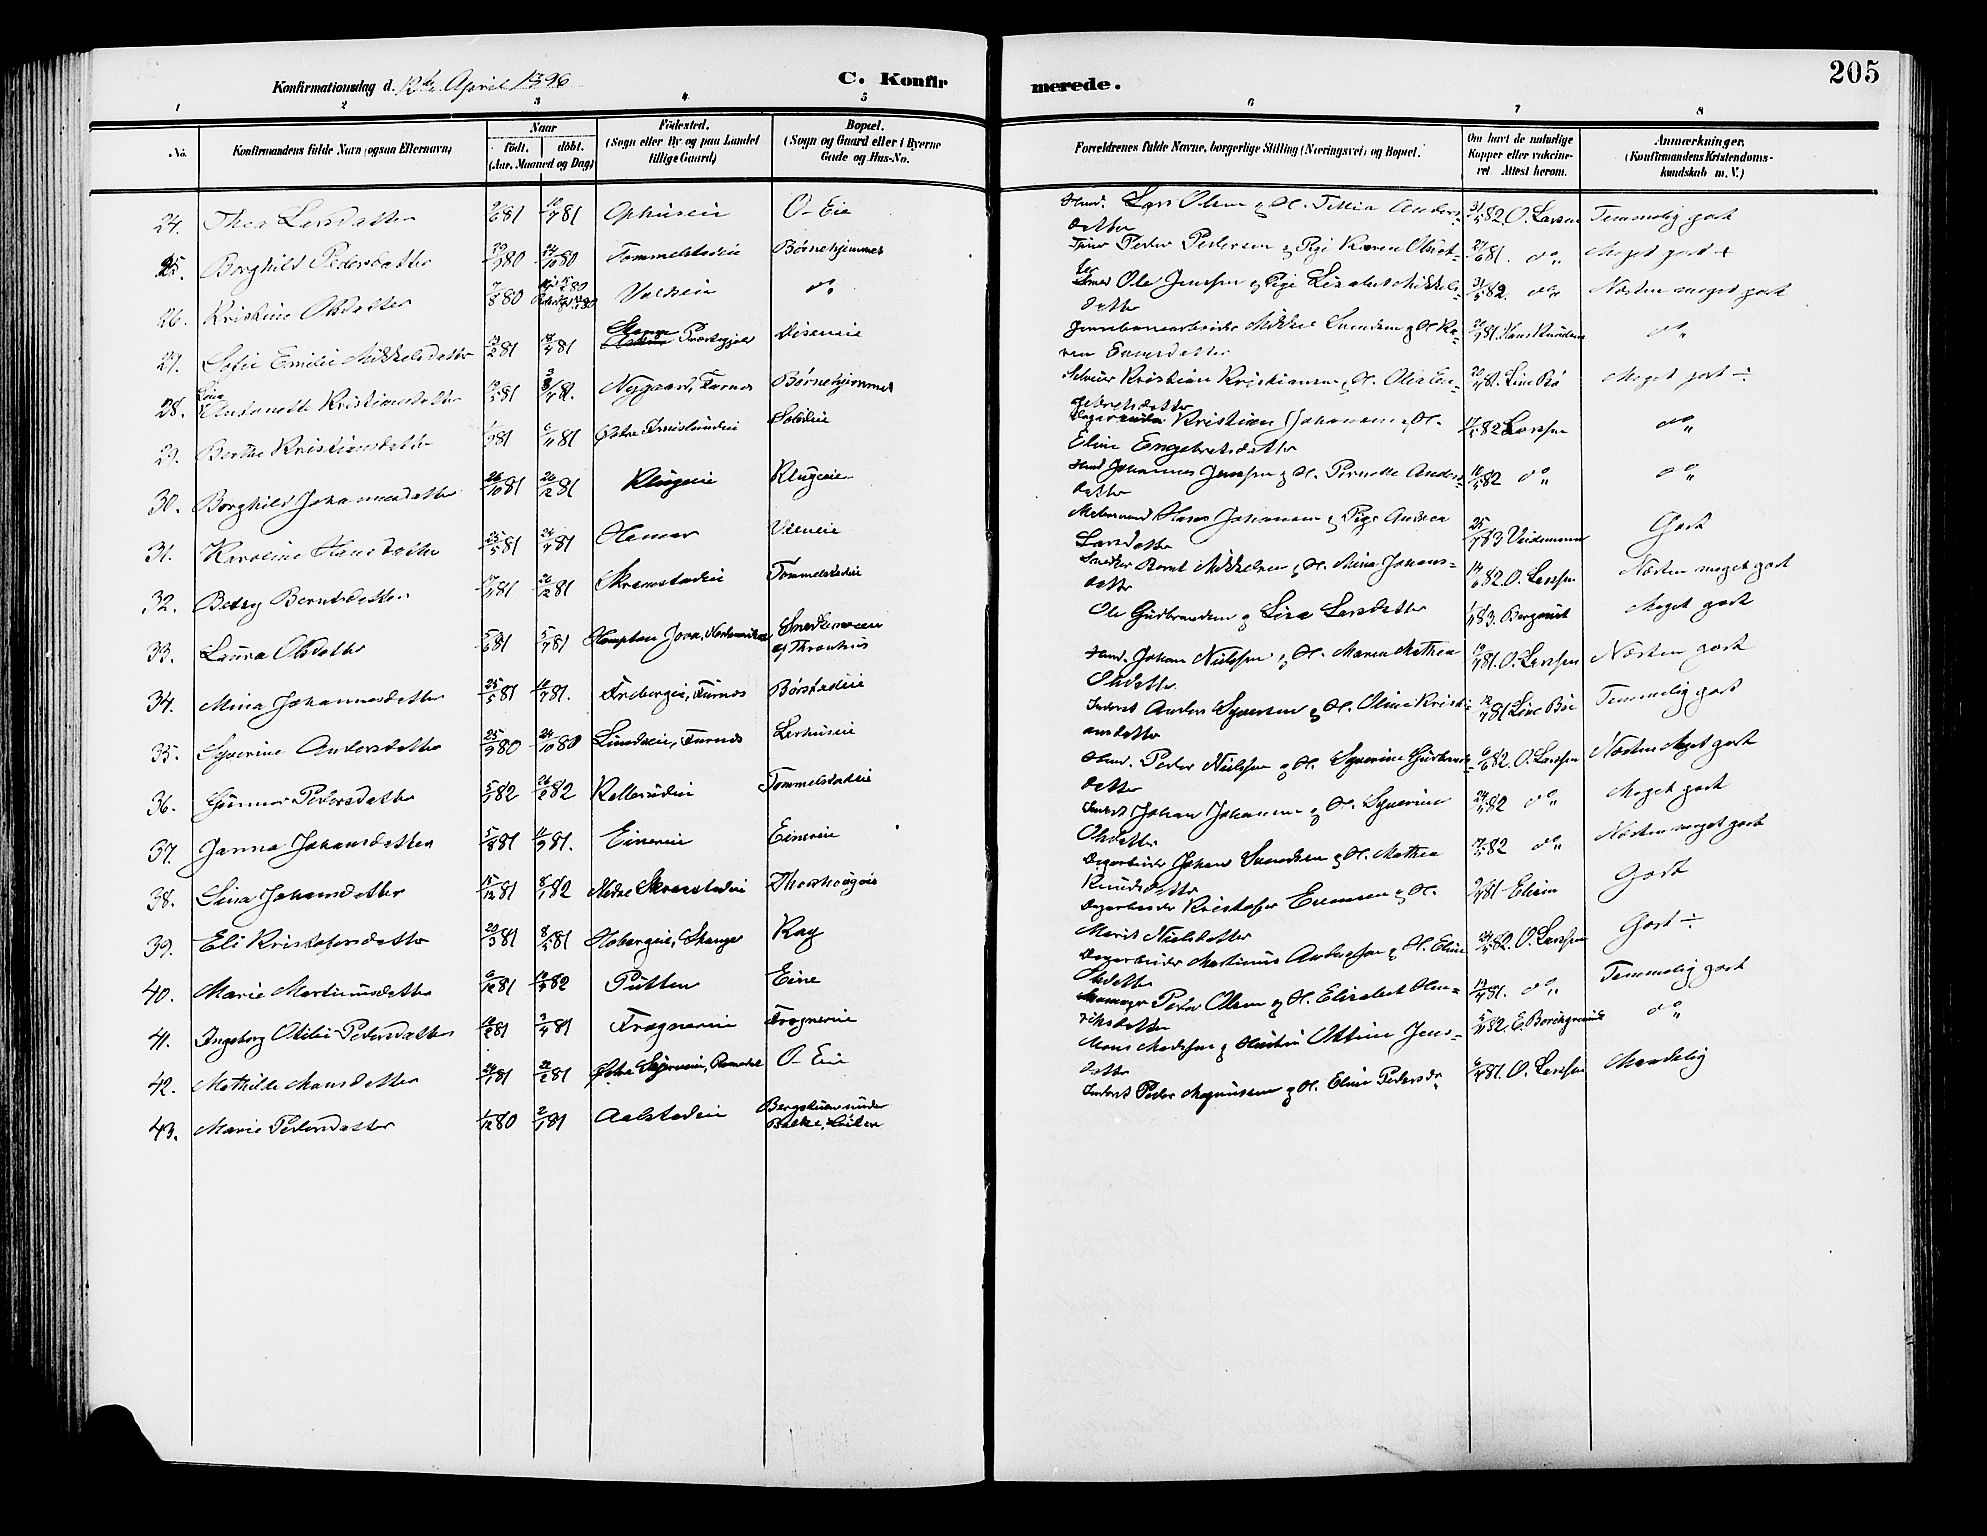 205
Konfirmationsdag d. 12te April 1896 C. Konfirmerede.
1 2 3 4 5 6 7 8
No. Konfirmandens fulde Navn (ogsaa Efternavn) Naar födt. döbt. (Aar, Maaned og Dag) Födested. (Sogn eller By og paa Landet tillige Gaard) Bopæl. (Sogn og Gaard eller i Byerne Gade og Hus-No. Forældrenes fulde Navne, borgerlige Stilling (Næringsvei) og Bopæl. Om havt de naturlige Kopper eller vakcineret. Attest herom. Anmærkninger. (Konfirmandens Kristendomskundskab m. V.)
24. Thea Larsdatter 2/6 81 10/7 81 Ophuseie O- Eie Hmd. Lars Olsen og H. Anders-datter 31/5 82 O. Larsen Temmelig godt
25. Borghild Pedersdatter 80 24/10 80 Tommelstadeie Børnehjemmet Peder Pedersen og Pige Karen Olsdatter 21/6 81. do Meget godt +
26. Kristine Olsdatter 7/8 80 Voldseie do Ole Jenssen og Pige Lisabet Mikkelsdatter 31/5 82. do Næsten meget godt
27. Sofie Emilie Mikkelsdatter 2 81 4 81 Stange Præstegjeld Diseneie Jernbanearbeider Mikkel Svendsen og H. Karen Evensdatter 81. Hans Knudsen do
28. Lina Antonette Kristiansdatter 81 81. Nygaard, Furnes Børnehjemmet Kristian Kristiansen og H. Olia Engebretsdatter 81. Line Bø Meget godt ÷
29. Berthe Kristiansdatter 81 81 Østre Solieie Dagarbeider Kristian Johansen og H. Eline Engebretsdatter 82 Larssen do
30. Borghild Johannesdatter 26/10 81 26/12 81 Klugeeie Klugeeie Hmd Johannes Jenssen og H. Pernette Andersdatter 82 do do
31. Karoline Hansdatter 23/5 81 24/7 81 Hamar Vieneie Hans Johansen og Pige Andrea Larsdatter 25/7 83 Veidemann Godt
32. Betzy Berntsdatter 81 26/12 81 Skramstadeie Tommelstadeie Snedker Bernt Mikkelsen og H. Mina Johansdatter 14/6 82. O. Larssen Næsten meget godt
33. Laura Olsdatter 5/6 81 5/7 81 Hampton Jova, Nordamerika Snedkersveen af Thronhus Ole Gudbrandsen og Lisa Larsdatter 83. Bergqvist Meget godt
34. Mina Johannesdatter 25/5 81 81. Frebergeie, Furnes Børstadeie Hmd. Johan Nielssen og H. Maren Mathea Olsdatter 81. O. Larssen Næsten godt
35. Syverine Andersdatter 25/9 80 24/10 80 Lundseie, Furnes Lerhuseie Inderst Anders Syversen og H. Oline Kristiansdatter 81 Line Bøe Temmelig godt
36. Gunnor Pedersdatter 5/1 82 26/2 82 Kellerudeie Tommelstadeie Hmd. Peder Nielssen og H. Syverine Gudbrandsdatter 6/6 82. O. Larssen Næsten Meget godt
37. Janna Johansdatter 5/8 81 11/9 81. Eineeie Eineeie Inderst Johan Johansen og H. Syverine Olsdatter 24/5 82 do Meget godt
38. Lina Johansdatter 15/12 81 8/1 82 Nedre Skramstadeie Thorshougeie Dagarbeider Johan Svendsen og H. Mathea Knudsdatter 82 do Næsten meget godt
39. Eli Kristofersdatter 20/3 81 8/5 81 Hobergeie, Stange Kag Dagarbeider Kristofer Evensen og H. Marit Nielsdatter 81 Elisen Godt
40. Marie Martiniusdatter 6/12 81 82 Putten Eine Dagarbeider Martinius Andersen og H. Eline Olsdatter 24/5 82. O. Larssen Godt ÷
41. Ingeborg Otilie Pedersdatter 81 3/4 81 Frogneeie Frogneeie Peder Olsen og H. Elisabet Olmriksdatter 81. do Temmelig godt
42. Mathilde Mansdatter 81 22/2 81 Østre Romedal O- Eie Mons Madssen og Hustru Ottine Jensdatter 82. E. Borchgrevink do
43. Marie Pedersdatter 1/12 80 2/1 81 Aalstadeie Bergshuse under Bakke, Løiten Inderst Peder Magnussen og H. Eline Pedersdr 6/7 81. O. Larssen Maadelig